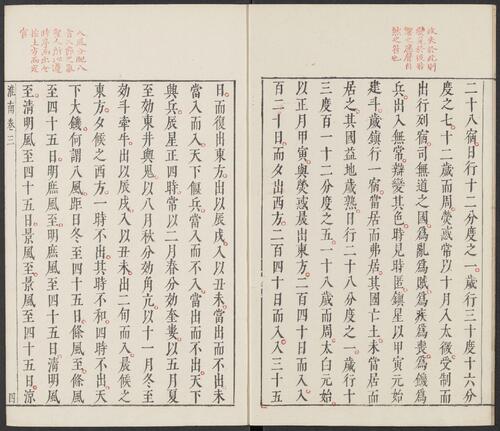 政失於此則
變見於彼若
響之應聲自
然之符也
二十八宿日行十二分度之一歲行三十度十六分
度之七十二歲而周熒惑常以十月入太微受制而
出行列宿司無道之國為亂為賊為疾為喪為饑為
兵出入無常辯變其色時見時匿鎮星以甲寅元始
建斗歲鎮行一宿當居而弗居其國亡土未當居而
居之其國益地歲熟日行二十八分度之一歲行十
三度百一十二分度之五二十八歲而周太白元始
以正月甲寅與熒惑晨出東方二百四十日而入入
百二十日而夕出西方二百四十日而入入三十五
八風分配八
音八卦之氣
聖人所以遵
時序而出令
按土方而定
官
日而復出東方出以辰戌入以丑未當出而不出未
當入而入天下偃兵當入而不入當出而不出天下
興兵辰星正四時常以二月春分効奎婁以五月夏
至効東井輿鬼以八月秋分効角亢以十一月冬至
効斗牽牛出以辰戌入以丑未出二旬而入晨候之
東方夕候之西方一時不出其時不和四時不出天
下大饑何謂八風距日冬至四十五日條風至條風
至四十五日明庶風至明庶風至四十五日清明風
至清明風至四十五日景風至景風至四十五日涼
淮南卷三
四